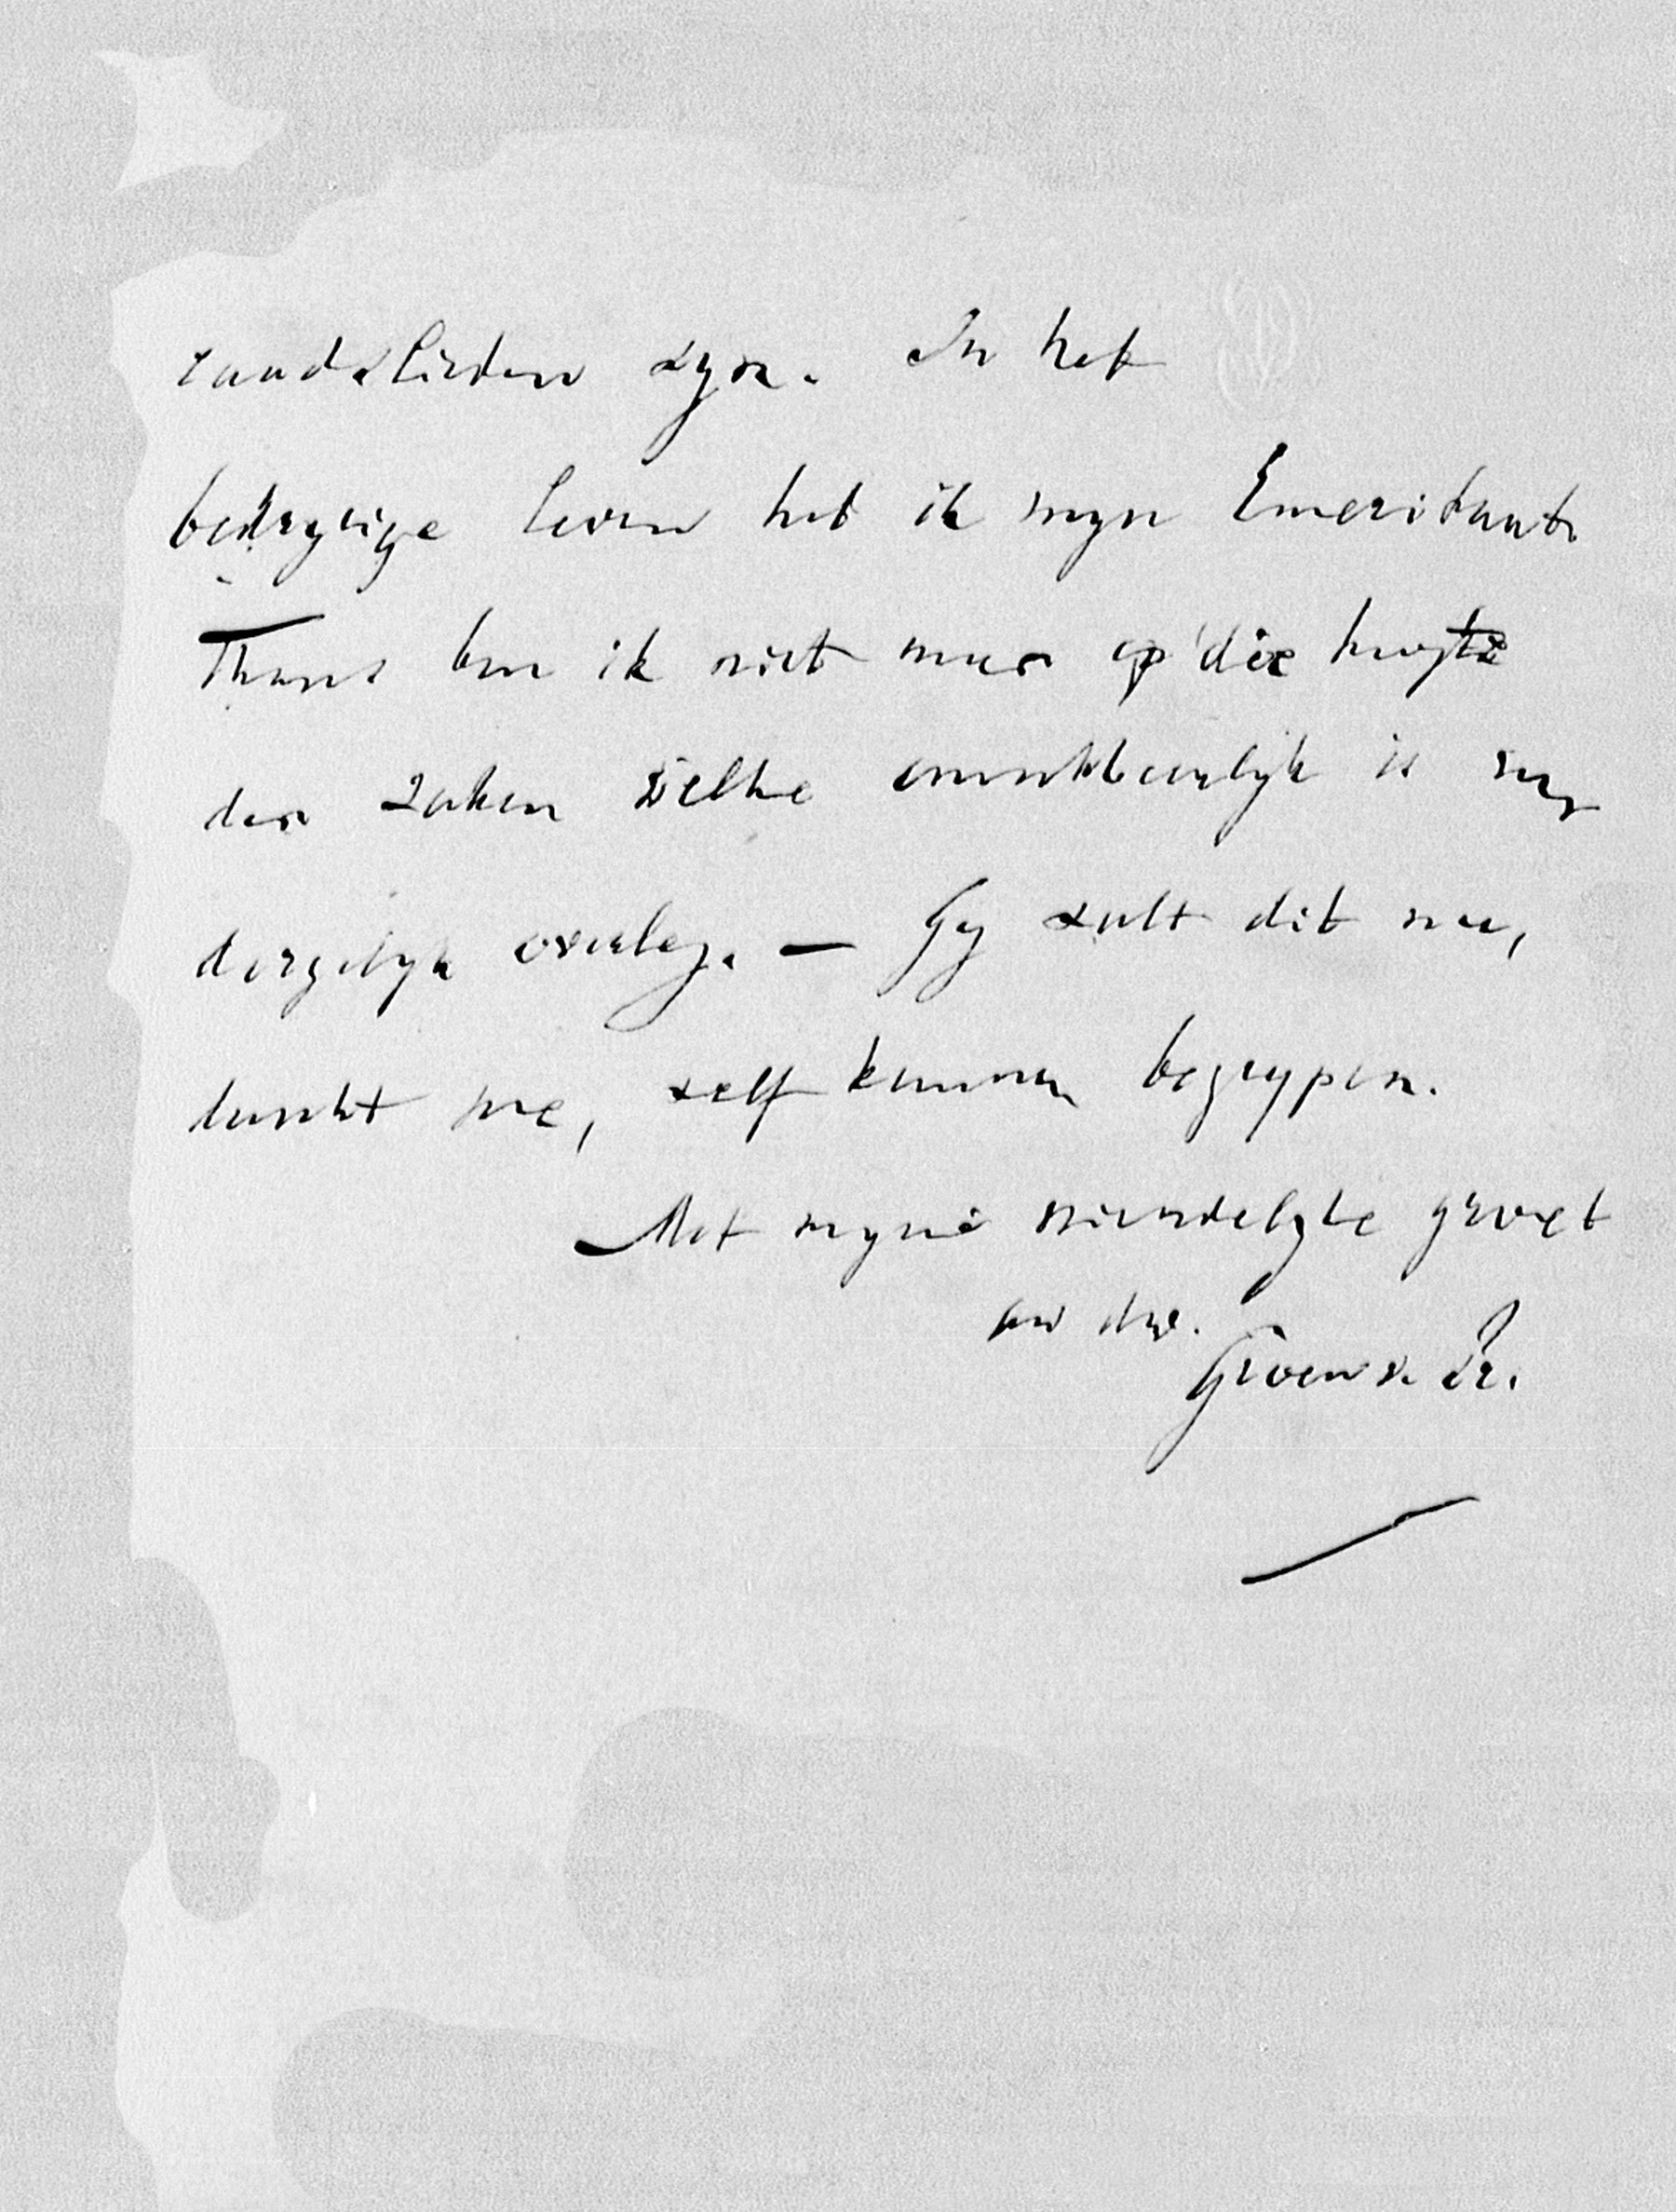 raadslieden zyn. In het
bedryvige leven heb ik myn Emeritaat.
Thans ben ik niet meer op die hoogte
der zaken welke onontbeerlyk is by
dergelyk overleg. — Gy zult dit nu,
dunkt me, zelf kunnen begrypen.
Met myne vriendelykste groet
uw dw.
Groen v. Pr.